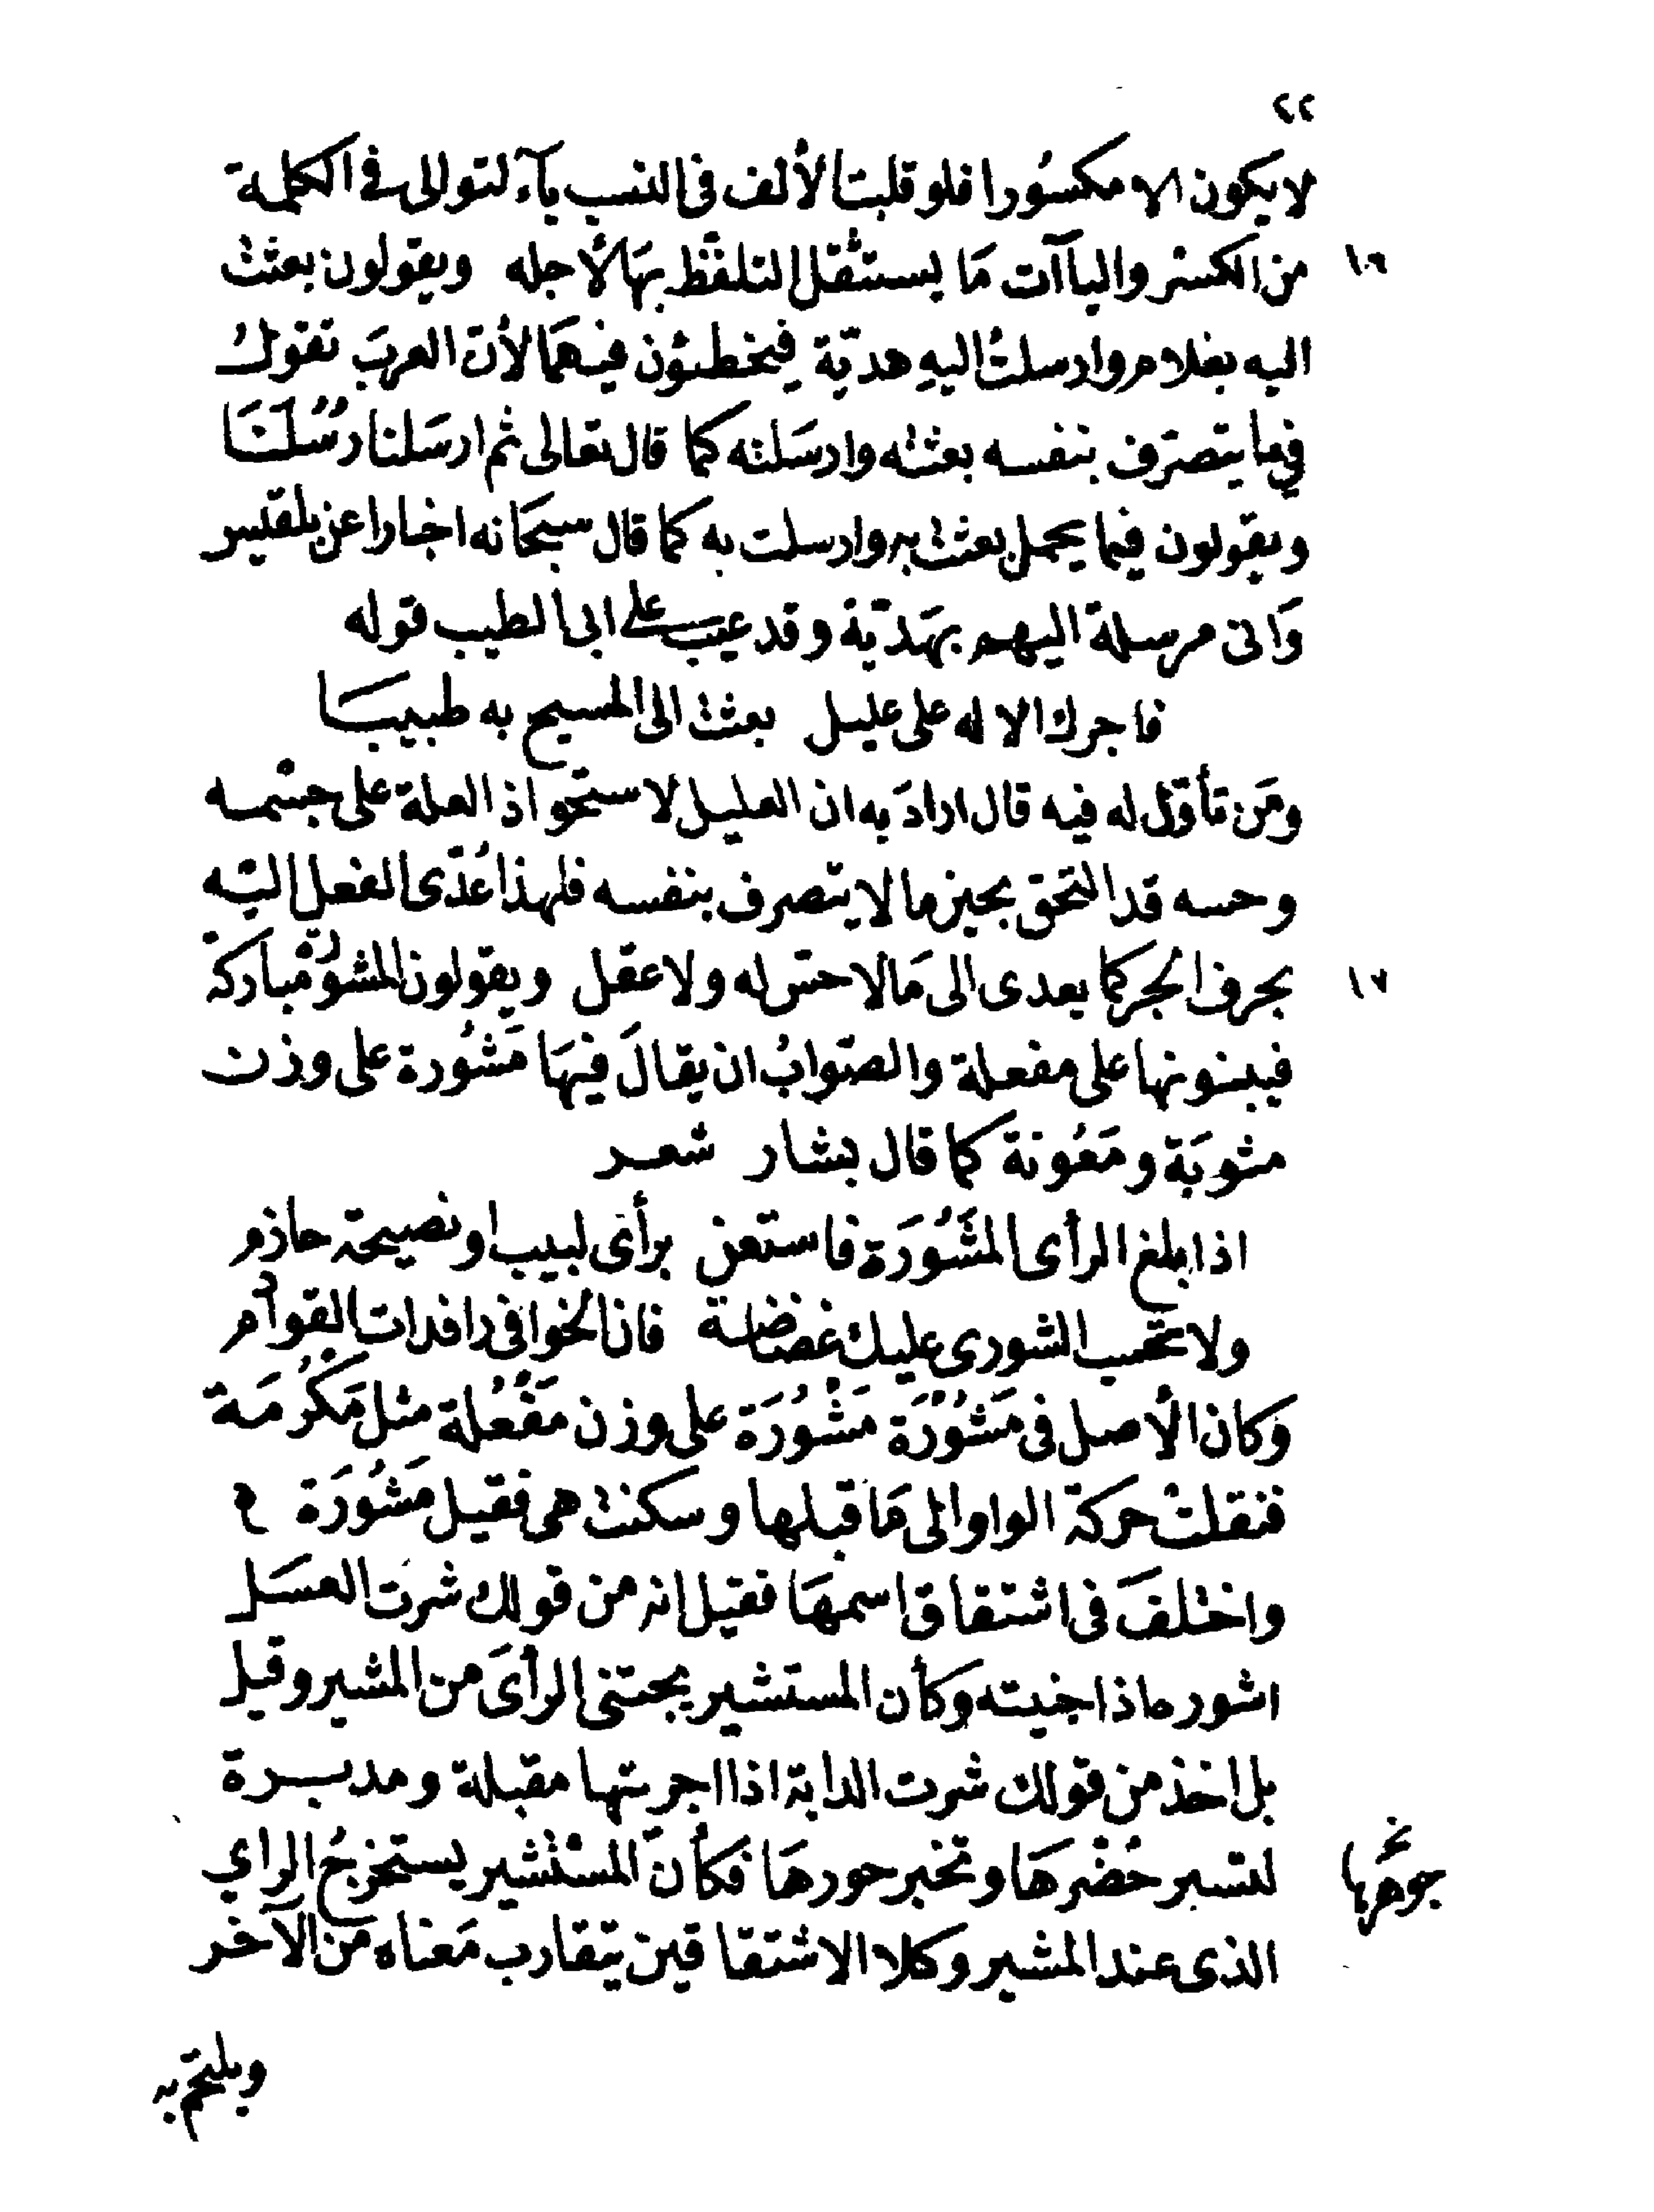 ٢٢
لا يكون الا مكسُورا فلو قلبت الألف في النسب يآء لتوالى في الكلمة
١٦
من الكسر والياآت مَا يستثقل التلفّظ بهَا لأجله ويقولون بعثت
اليه بغلام وارسلتُ اليهِ هديّة فيخطئون فيهمَا لأن العربَ تقولُ
فيما يتصرّف بنفسه بعثته وارسَلته كما قال تعالى ثم ارسَلنا رُسُلَنَا
ويقولون فيما يحمل بعثت به وارسلت به كما قال سبحَانه اخبارا عن بلقيس
وَانى مرسلة اليهم بهَديّة وقد عيب على ابى الطيب قوله
فاجرك الاله على عليل بعثت الى المسيح به طبيبَا
ومَن تأوّل له فيه قال ارادَ به ان العليل لاستحواذ العلة على جسْمه
وحسه قد التحق بحيز ما لا يتصرف بنفسه فلهذا عُدّى الفعل اليْه
١٧
بحرف الجر كما يعدى الى مَا لا حسّ له ولا عقل ويقولون المشوُرة مْباركة
فيبنونها على مفعلة والصّوابُ ان يقالَ فيهَا مَشُورة على وزن
مثوبَة ومَعُونة كما قال بشار شعر
اذا بلغ الرأى المَشُورَة فاستعن برأى لبيب او نصيحة حازم
ولا تحسب الشورى عليك غضاضة فان الخوافى رافدات القوادم
وَكان الأصل في مَشُوْرَة مَشْوُرَة على وزن مَفْعُلة مثل مَكْرُمَة
فنقلتْ حركة الواو الى مَا قبلها وسكنت هى فقيل مَشُورَة
واختلفَ في اشتقاق اسمهَا فقيل انه من قولك شرت العسَل
اشوره اذا جنيته وكأن المستشير يجتنى الرأىَ من المشير وقيل
بل اخذ من قولك شرت الدابة اذا اجريتها مقبلة ومدبرة
جوهرها
لتسبر حُضْرهَا وتخبر جورهَا فكأنّ المسْتشير يستخرجُ الراي
الذى عند المشير وكلا الاشتقاقين يتقارب مَعناه مَن الآخر
ويلتحم به